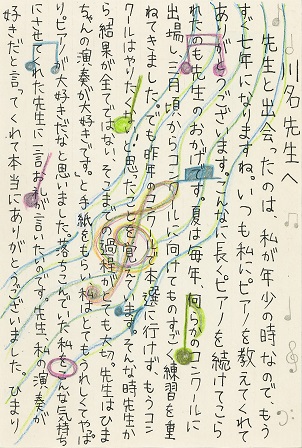 川名先生へ
先生と出会ったのは、私が年少の時なので、もう
すぐ七年になりますね。いつも私にピアノを教えてくれて
ありがとうございます。こんなに長くピアノを続けてこら
れたのも先生のおかげです。夏は毎年、何らかのコンクールに
出場し、三月頃からコンクールに向けてものすごく練習を重
ねてきました。でも昨年のコンクールで本選に行けず、もうコン
クールはやりたくないと思ったことを覚えています。そんな時先生か
ら「結果が全てではない、そこまでの過程がとても大切。先生はひま
りちゃんの演奏が大好きです。」と手紙をもらい、私はとてもうれしくてやっぱ
りピアノが大好きだなと思いました。落ちこんでいた私をこんな気持ち
にさせてくれた先生に一言お礼が言いたいのです。先生、私の演奏が
好きだと言ってくれて本当にありがとうございました。ひまり